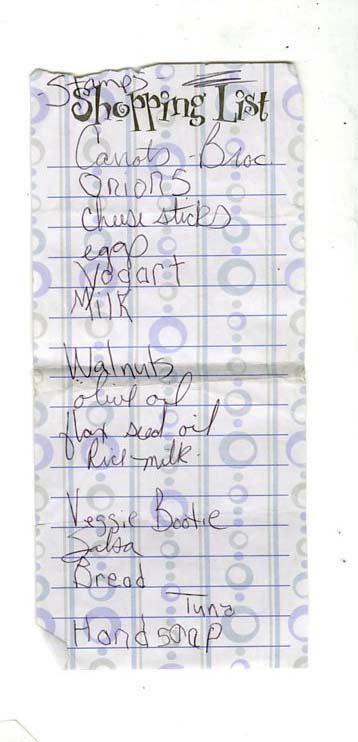 Stamps
Shopping List
Carrots - Broc.
Onions
Cheese sticks
eggs
Yogart
Milk
Walnuts
olive oil
flax seed oil
Rice milk
Veggie Bootie
Salsa
Bread
Tuna
Hand soap